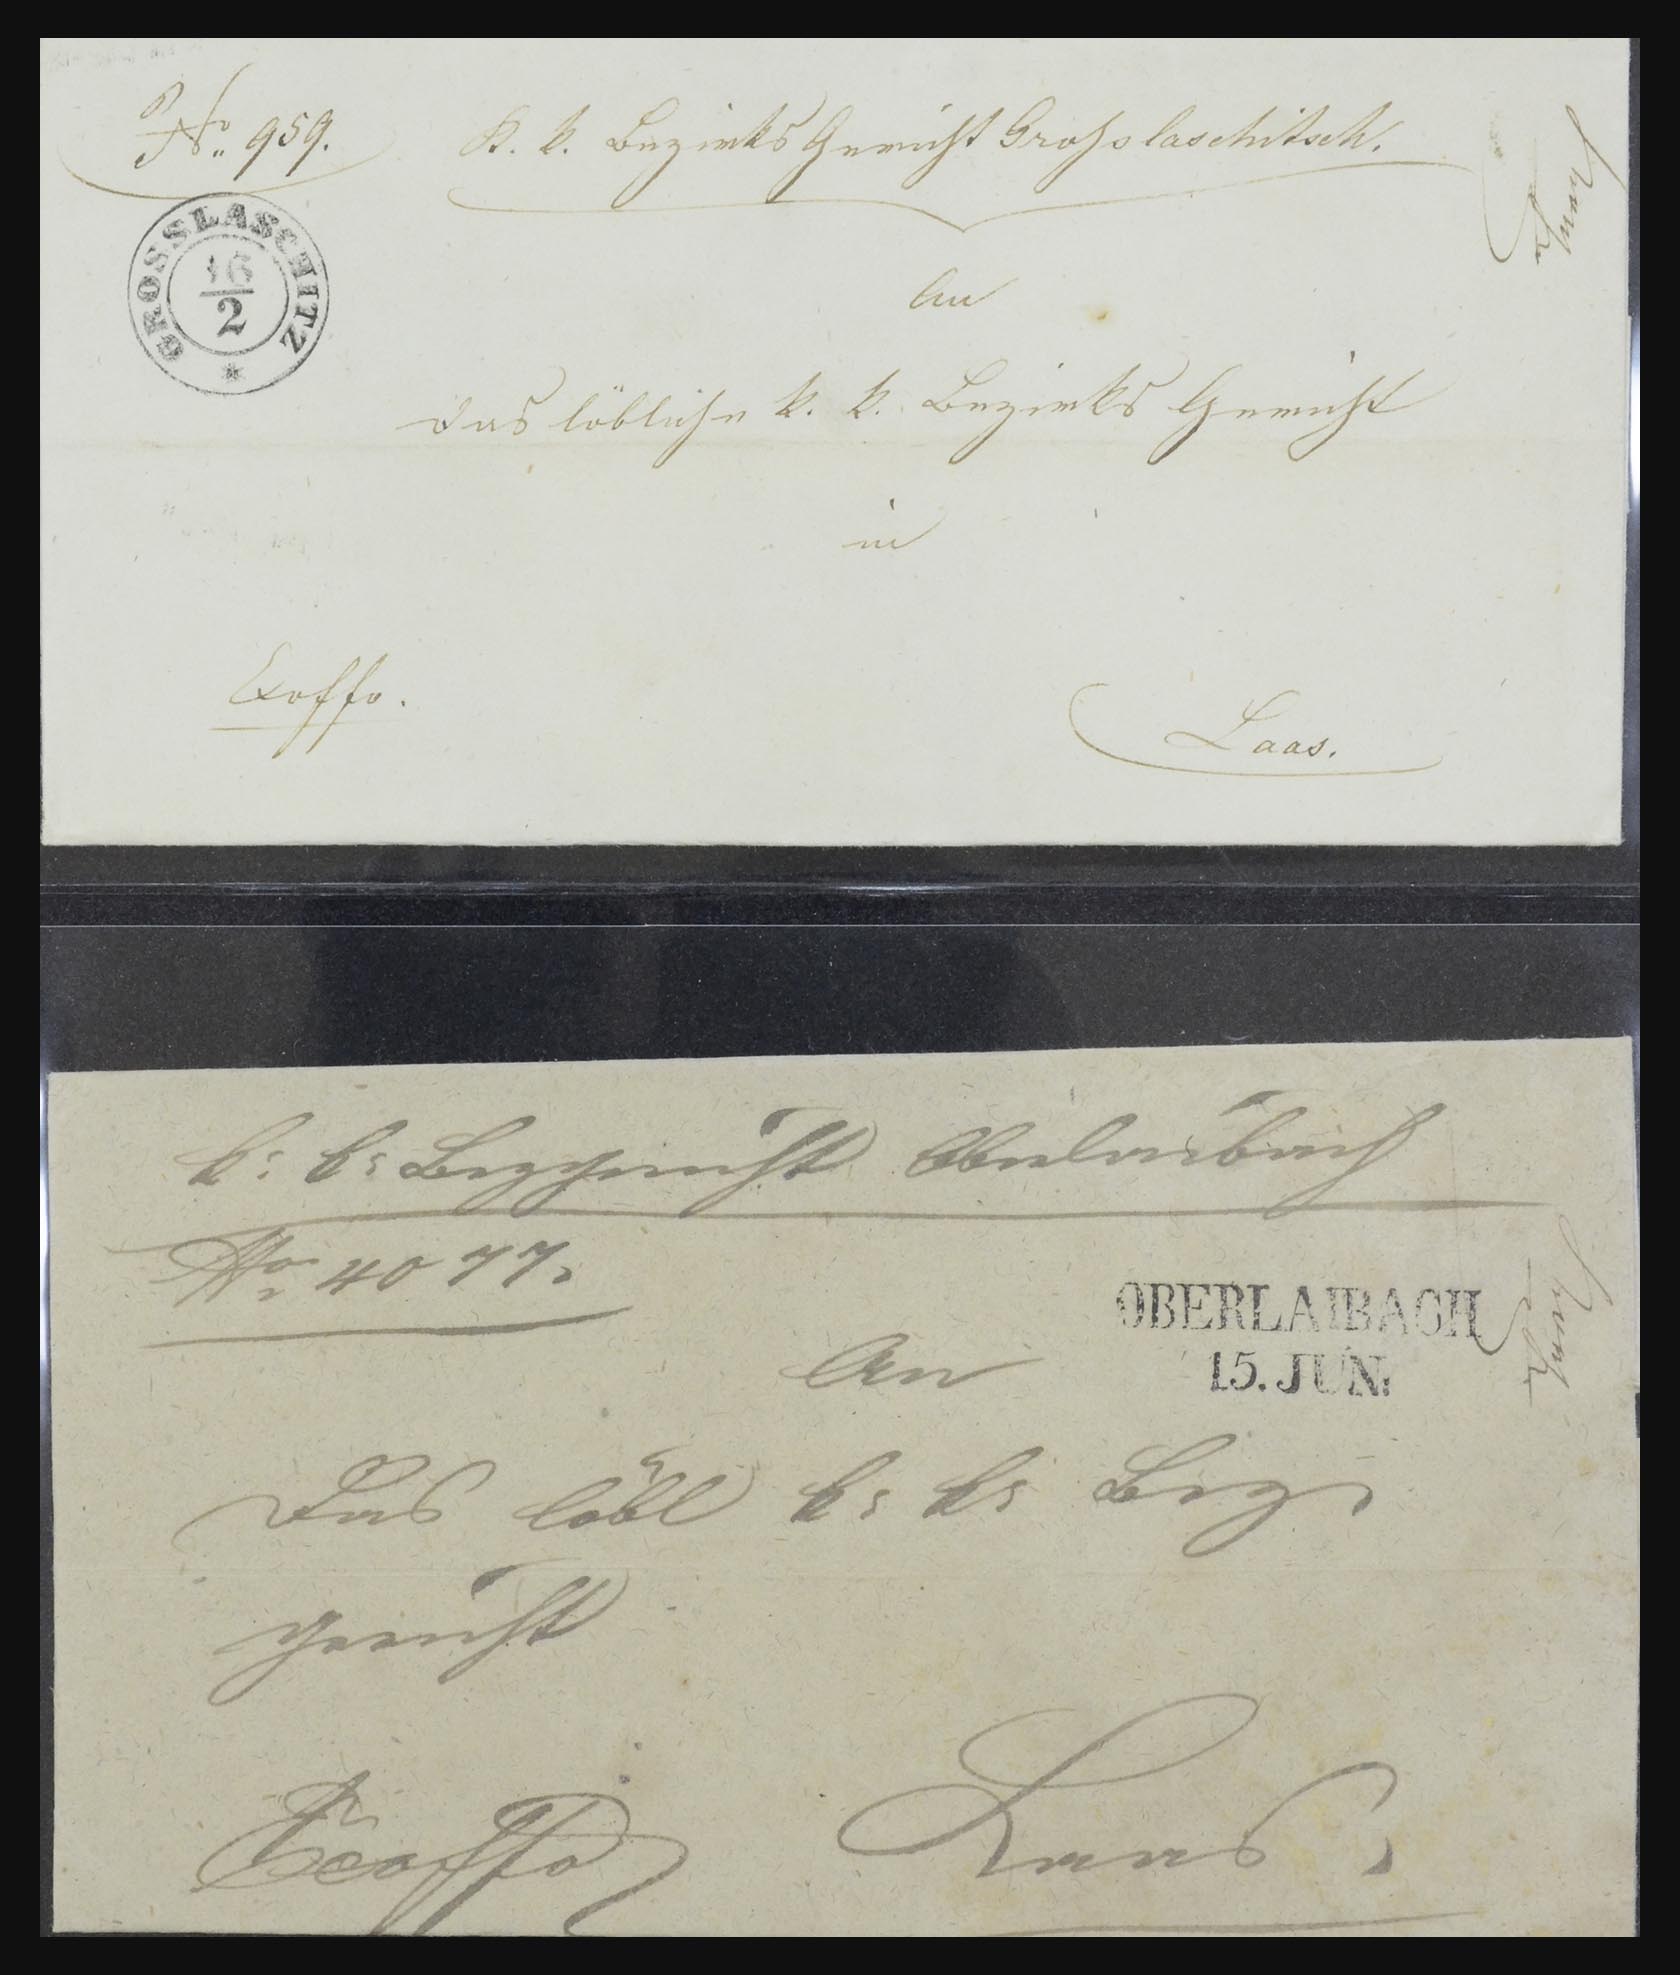 No. 959.
K. k. Bezirks Gericht Großlaschitsch.
GROSSLASCHITZ
16
2
An
das löbliche k. k. Bezirks Gericht
in
Exoffo.
Laas.
k: k: Bezgericht Oberlaibach
No. 4077.
OBERLAIBACH
15. JUN:
An
Das löbl k: k: Bez.
gericht
Exoffo
Laas.